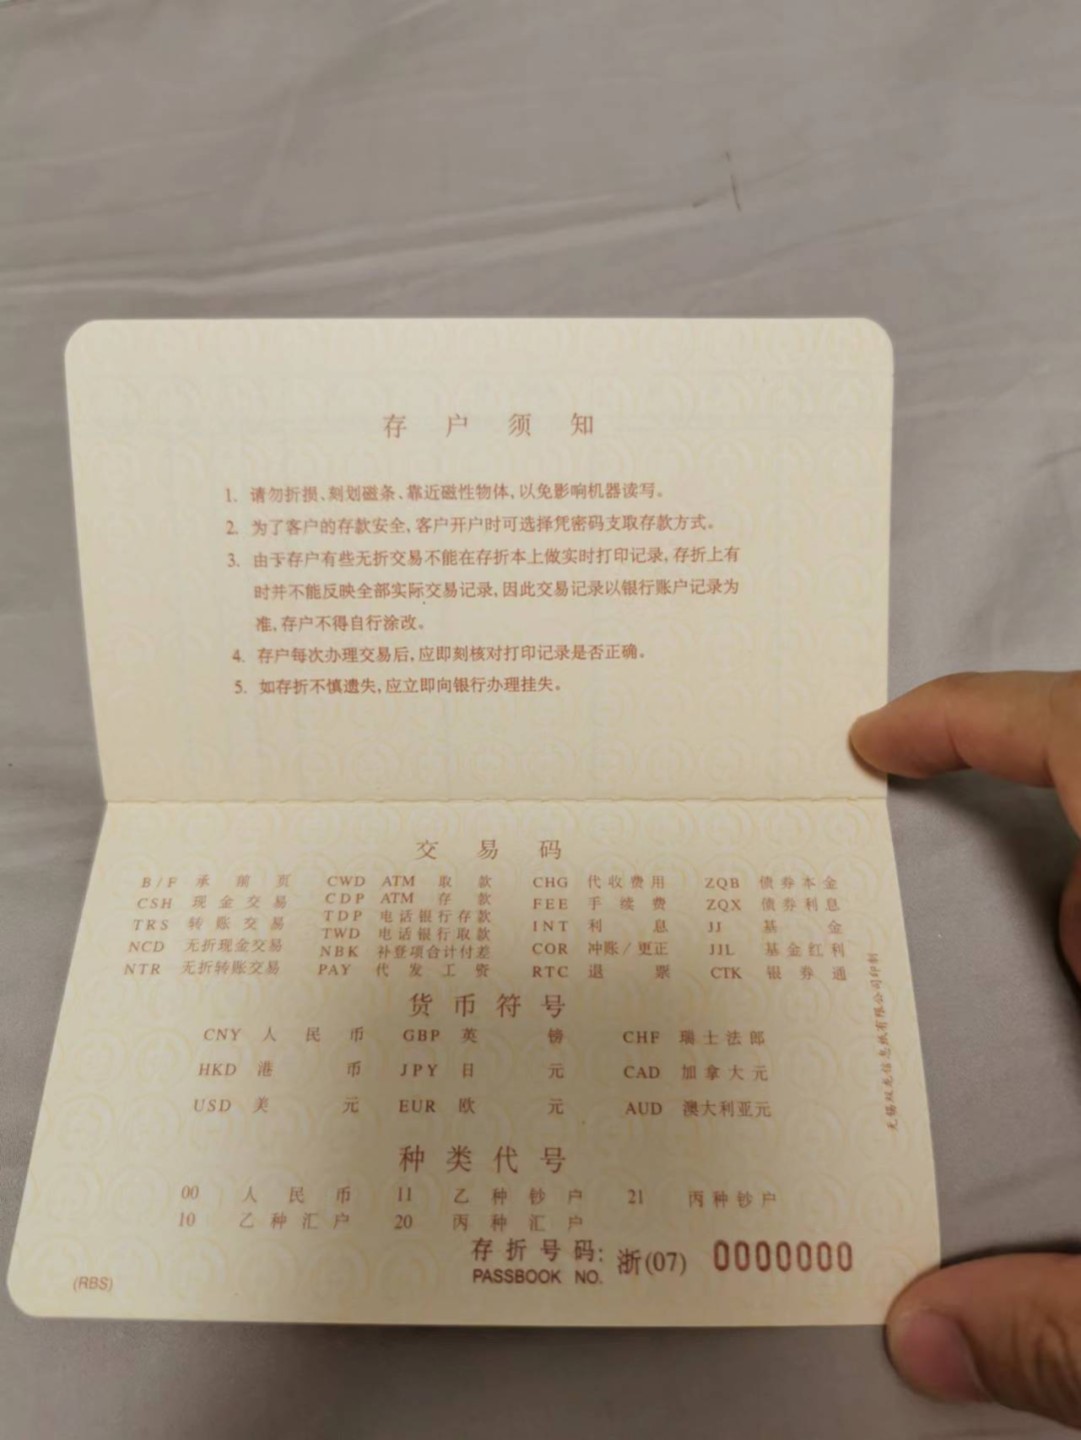 存户须知
1. 请勿折损、刻划磁条、靠近磁性物体，以免影响机器读写。
2. 为了客户的存款安全，客户开户时可选择凭密码支取存款方式。
3. 由于存户有些无折交易不能在存折本上做实时打印记录，存折上有
时并不能反映全部实际交易记录，因此交易记录以银行账户记录为
准，存户不得自行涂改。
4. 存户每次办理交易后，应即刻核对打印记录是否正确。
5. 如存折不慎遗失，应立即向银行办理挂失。
交易码
B/F 承前页 CWD ATM取款 CHG 代收费用 ZQB 债券本金
CSH 现金交易 CDP ATM存款 FEE 手续费 ZQX 债券利息
TRS 转账交易 TDP 电话银行存款 INT 利息 JJ 基金
NCD 无折现金交易 TWD 电话银行取款 COR 冲账/更正 JJL 基金红利
NTR 无折转账交易 NBK 补登项合计付差 RTC 退票 CTK 银券通
PAY 代发工资
货币符号
CNY 人民币 GBP 英镑 CHF 瑞士法郎
HKD 港币 JPY 日元 CAD 加拿大元
USD 美元 EUR 欧元 AUD 澳大利亚元
种类代号
00 人民币 11 乙种钞户 21 丙种钞户
10 乙种汇户 20 丙种汇户
存折号码: 浙(07) 0000000
PASSBOOK NO.
(RBS)